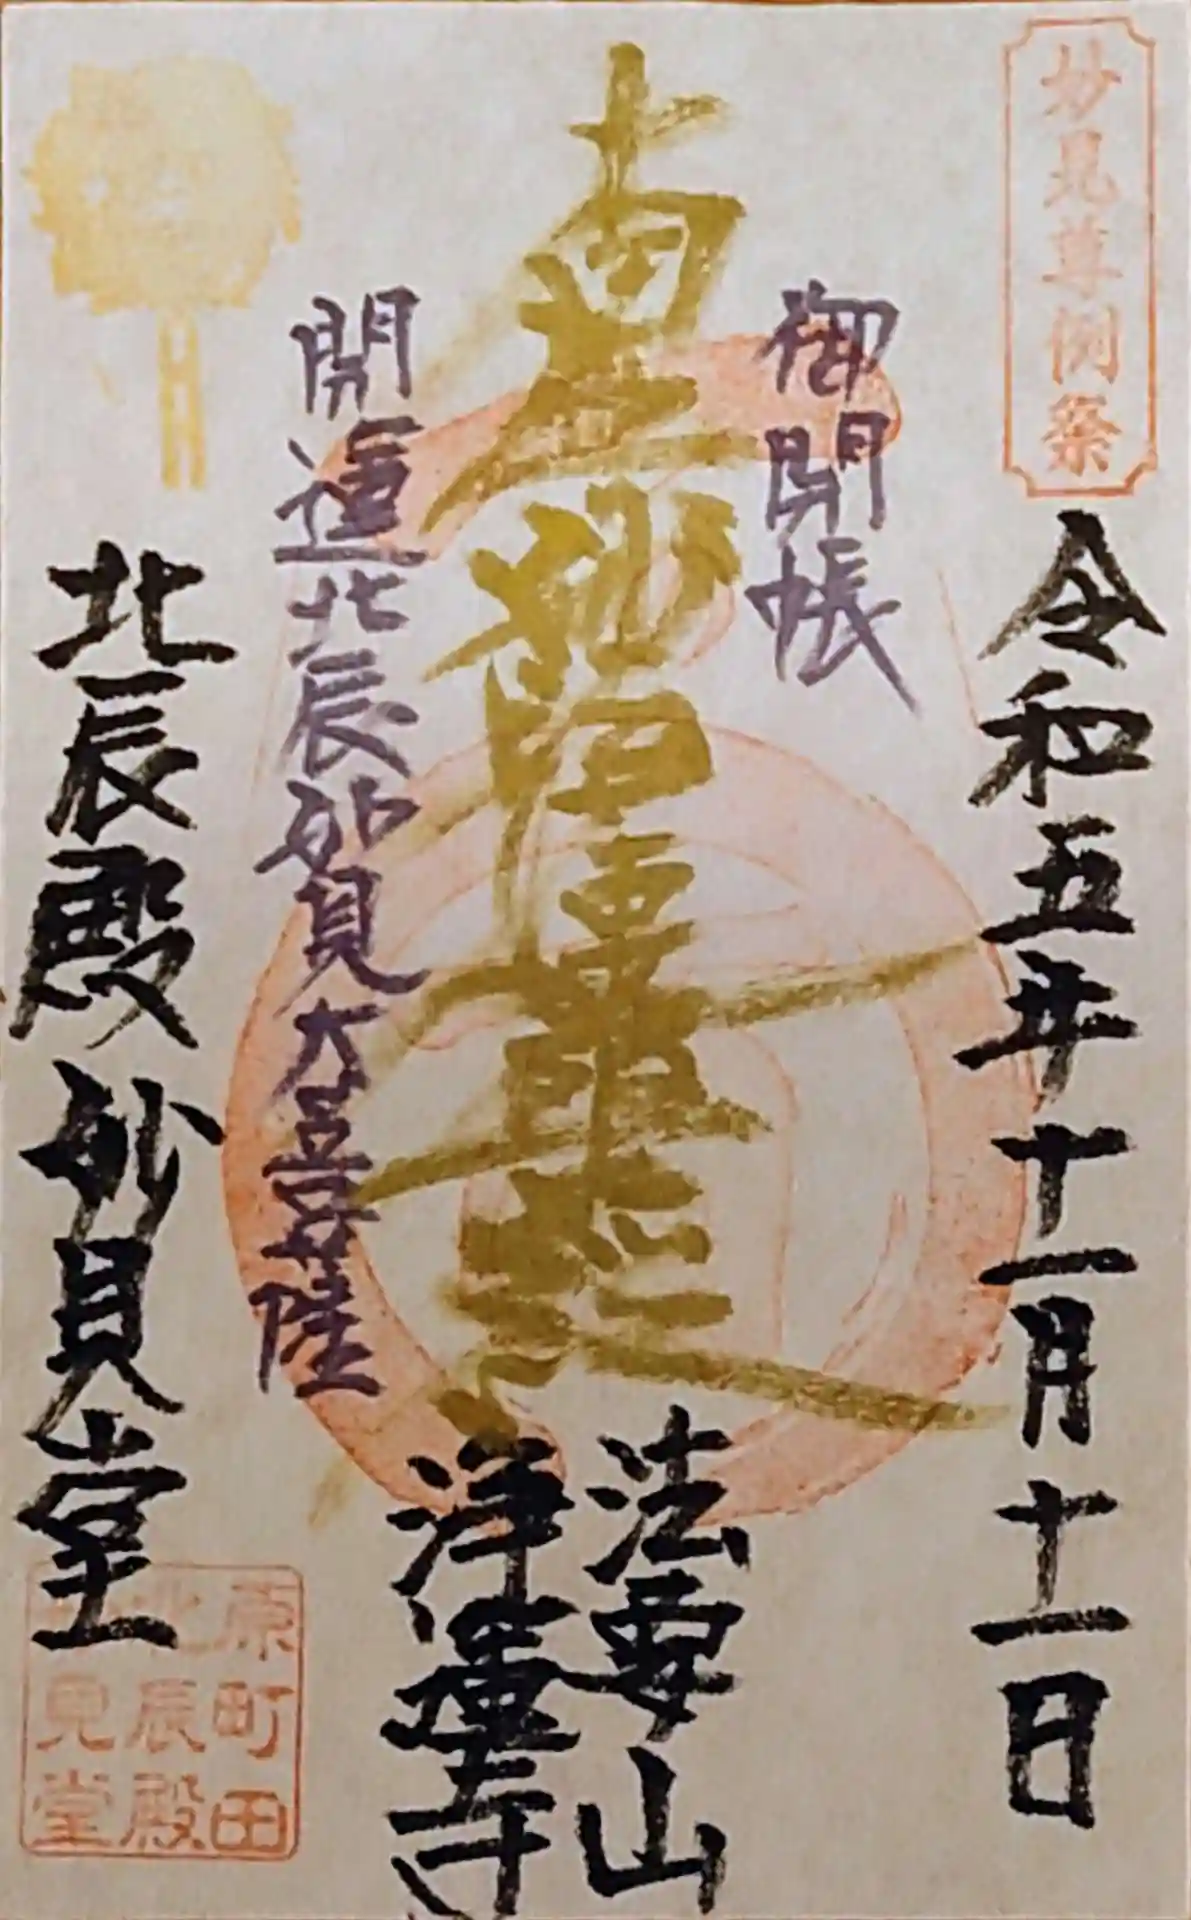 妙見尊例祭
令和五年十一月十一日
御開帳
南無妙法蓮華経
法要山
浄運寺
開運北辰妙見大菩薩
北辰殿妙見堂
原町田
北辰殿
妙見堂